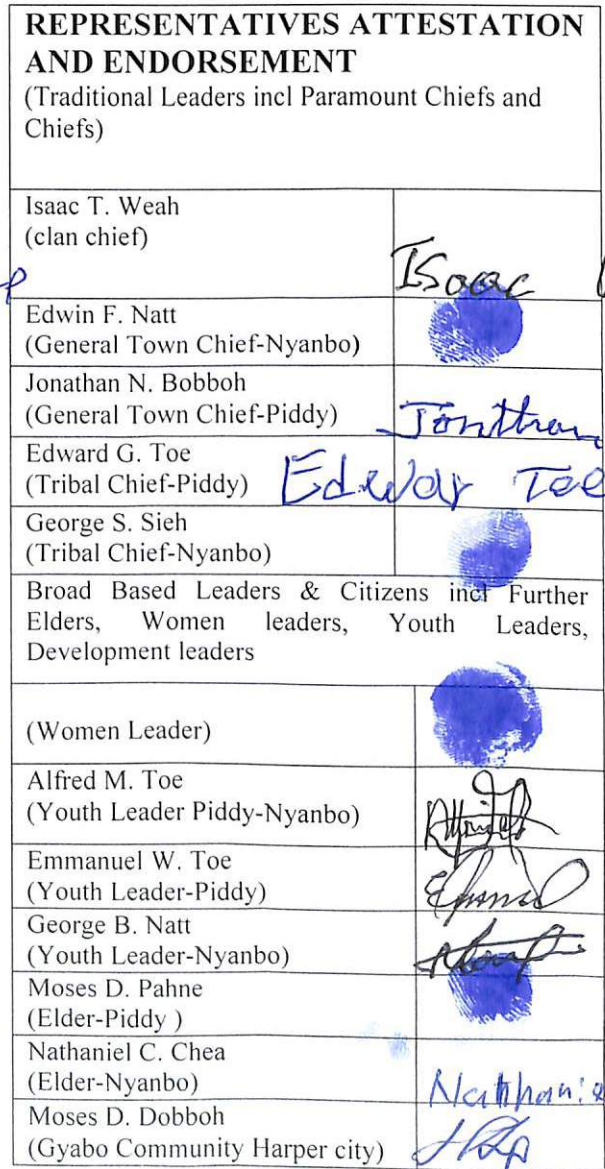 REPRESENTATIVES ATTESTATION
AND ENDORSEMENT
(Traditional Leaders incl Paramount Chiefs and
Chiefs)
Isaac T. Weah
(clan chief)
Isaac
Edwin F. Natt
(General Town Chief-Nyanbo)
Jonathan N. Bobboh
(General Town Chief-Piddy)
Jontthan
Edward G. Toe
(Tribal Chief-Piddy)
Edwar Toe
George S. Sieh
(Tribal Chief-Nyanbo)
Broad Based Leaders & Citizens incl Further
Elders, Women leaders, Youth Leaders,
Development leaders
(Women Leader)
Alfred M. Toe
(Youth Leader Piddy-Nyanbo)
Emmanuel W. Toe
(Youth Leader-Piddy)
George B. Natt
(Youth Leader-Nyanbo)
Moses D. Pahne
(Elder-Piddy )
Nathaniel C. Chea
(Elder-Nyanbo)
Moses D. Dobboh
(Gyabo Community Harper city)